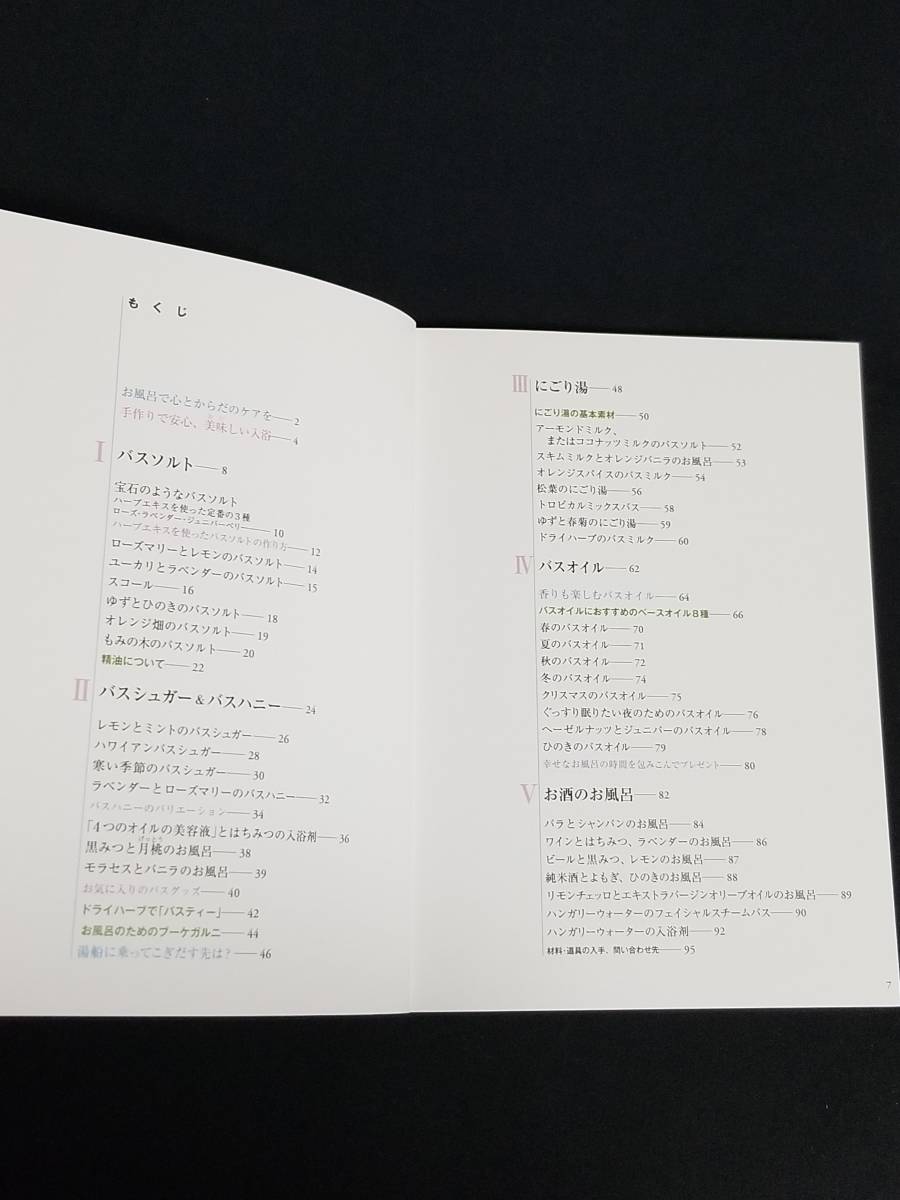 もくじ
お風呂で心とからだのケアを──2
手作りで安心、美味しい入浴──4
I バスソルト──8
宝石のようなバスソルト
ハーブエキスを使った定番の3種
ローズ・ラベンダー・ジュニパーベリー──10
ハーブエキスを使ったバスソルトの作り方──12
ローズマリーとレモンのバスソルト──14
ユーカリとラベンダーのバスソルト──15
スコール──16
ゆずとひのきのバスソルト──18
オレンジ畑のバスソルト──19
もみの木のバスソルト──20
精油について──22
II バスシュガー&バスハニー──24
レモンとミントのバスシュガー──26
ハワイアンバスシュガー──28
寒い季節のバスシュガー──30
ラベンダーとローズマリーのバスハニー──32
バスハニーのバリエーション──34
「4つのオイルの美容液」とはちみつの入浴剤──36
げっとう
黒みつと月桃のお風呂──38
モラセスとバニラのお風呂──39
お気に入りのバスグッズ──40
ドライハーブで「バスティー」──42
お風呂のためのブーケガルニ──44
湯船に乗ってこぎだす先は?──46
III にごり湯──48
にごり湯の基本素材──50
アーモンドミルク、
またはココナッツミルクのバスソルト──52
スキムミルクとオレンジバニラのお風呂──53
オレンジスパイスのバスミルク──54
松葉のにごり湯──56
トロピカルミックスバス──58
ゆずと春菊のにごり湯──59
ドライハーブのバスミルク──60
IV バスオイル──62
香りも楽しむバスオイル──64
バスオイルにおすすめのベースオイル8種──66
春のバスオイル──70
夏のバスオイル──71
秋のバスオイル──72
冬のバスオイル──74
クリスマスのバスオイル──75
ぐっすり眠りたい夜のためのバスオイル──76
ヘーゼルナッツとジュニパーのバスオイル──78
ひのきのバスオイル──79
幸せなお風呂の時間を包みこんでプレゼント──80
V お酒のお風呂──82
バラとシャンパンのお風呂──84
ワインとはちみつ、ラベンダーのお風呂──86
ビールと黒みつ、レモンのお風呂──87
純米酒とよもぎ、ひのきのお風呂──88
リモンチェッロとエキストラバージンオリーブオイルのお風呂──89
ハンガリーウォーターのフェイシャルスチームバス──90
ハンガリーウォーターの入浴剤──92
材料・道具の入手、問い合わせ先──95
7